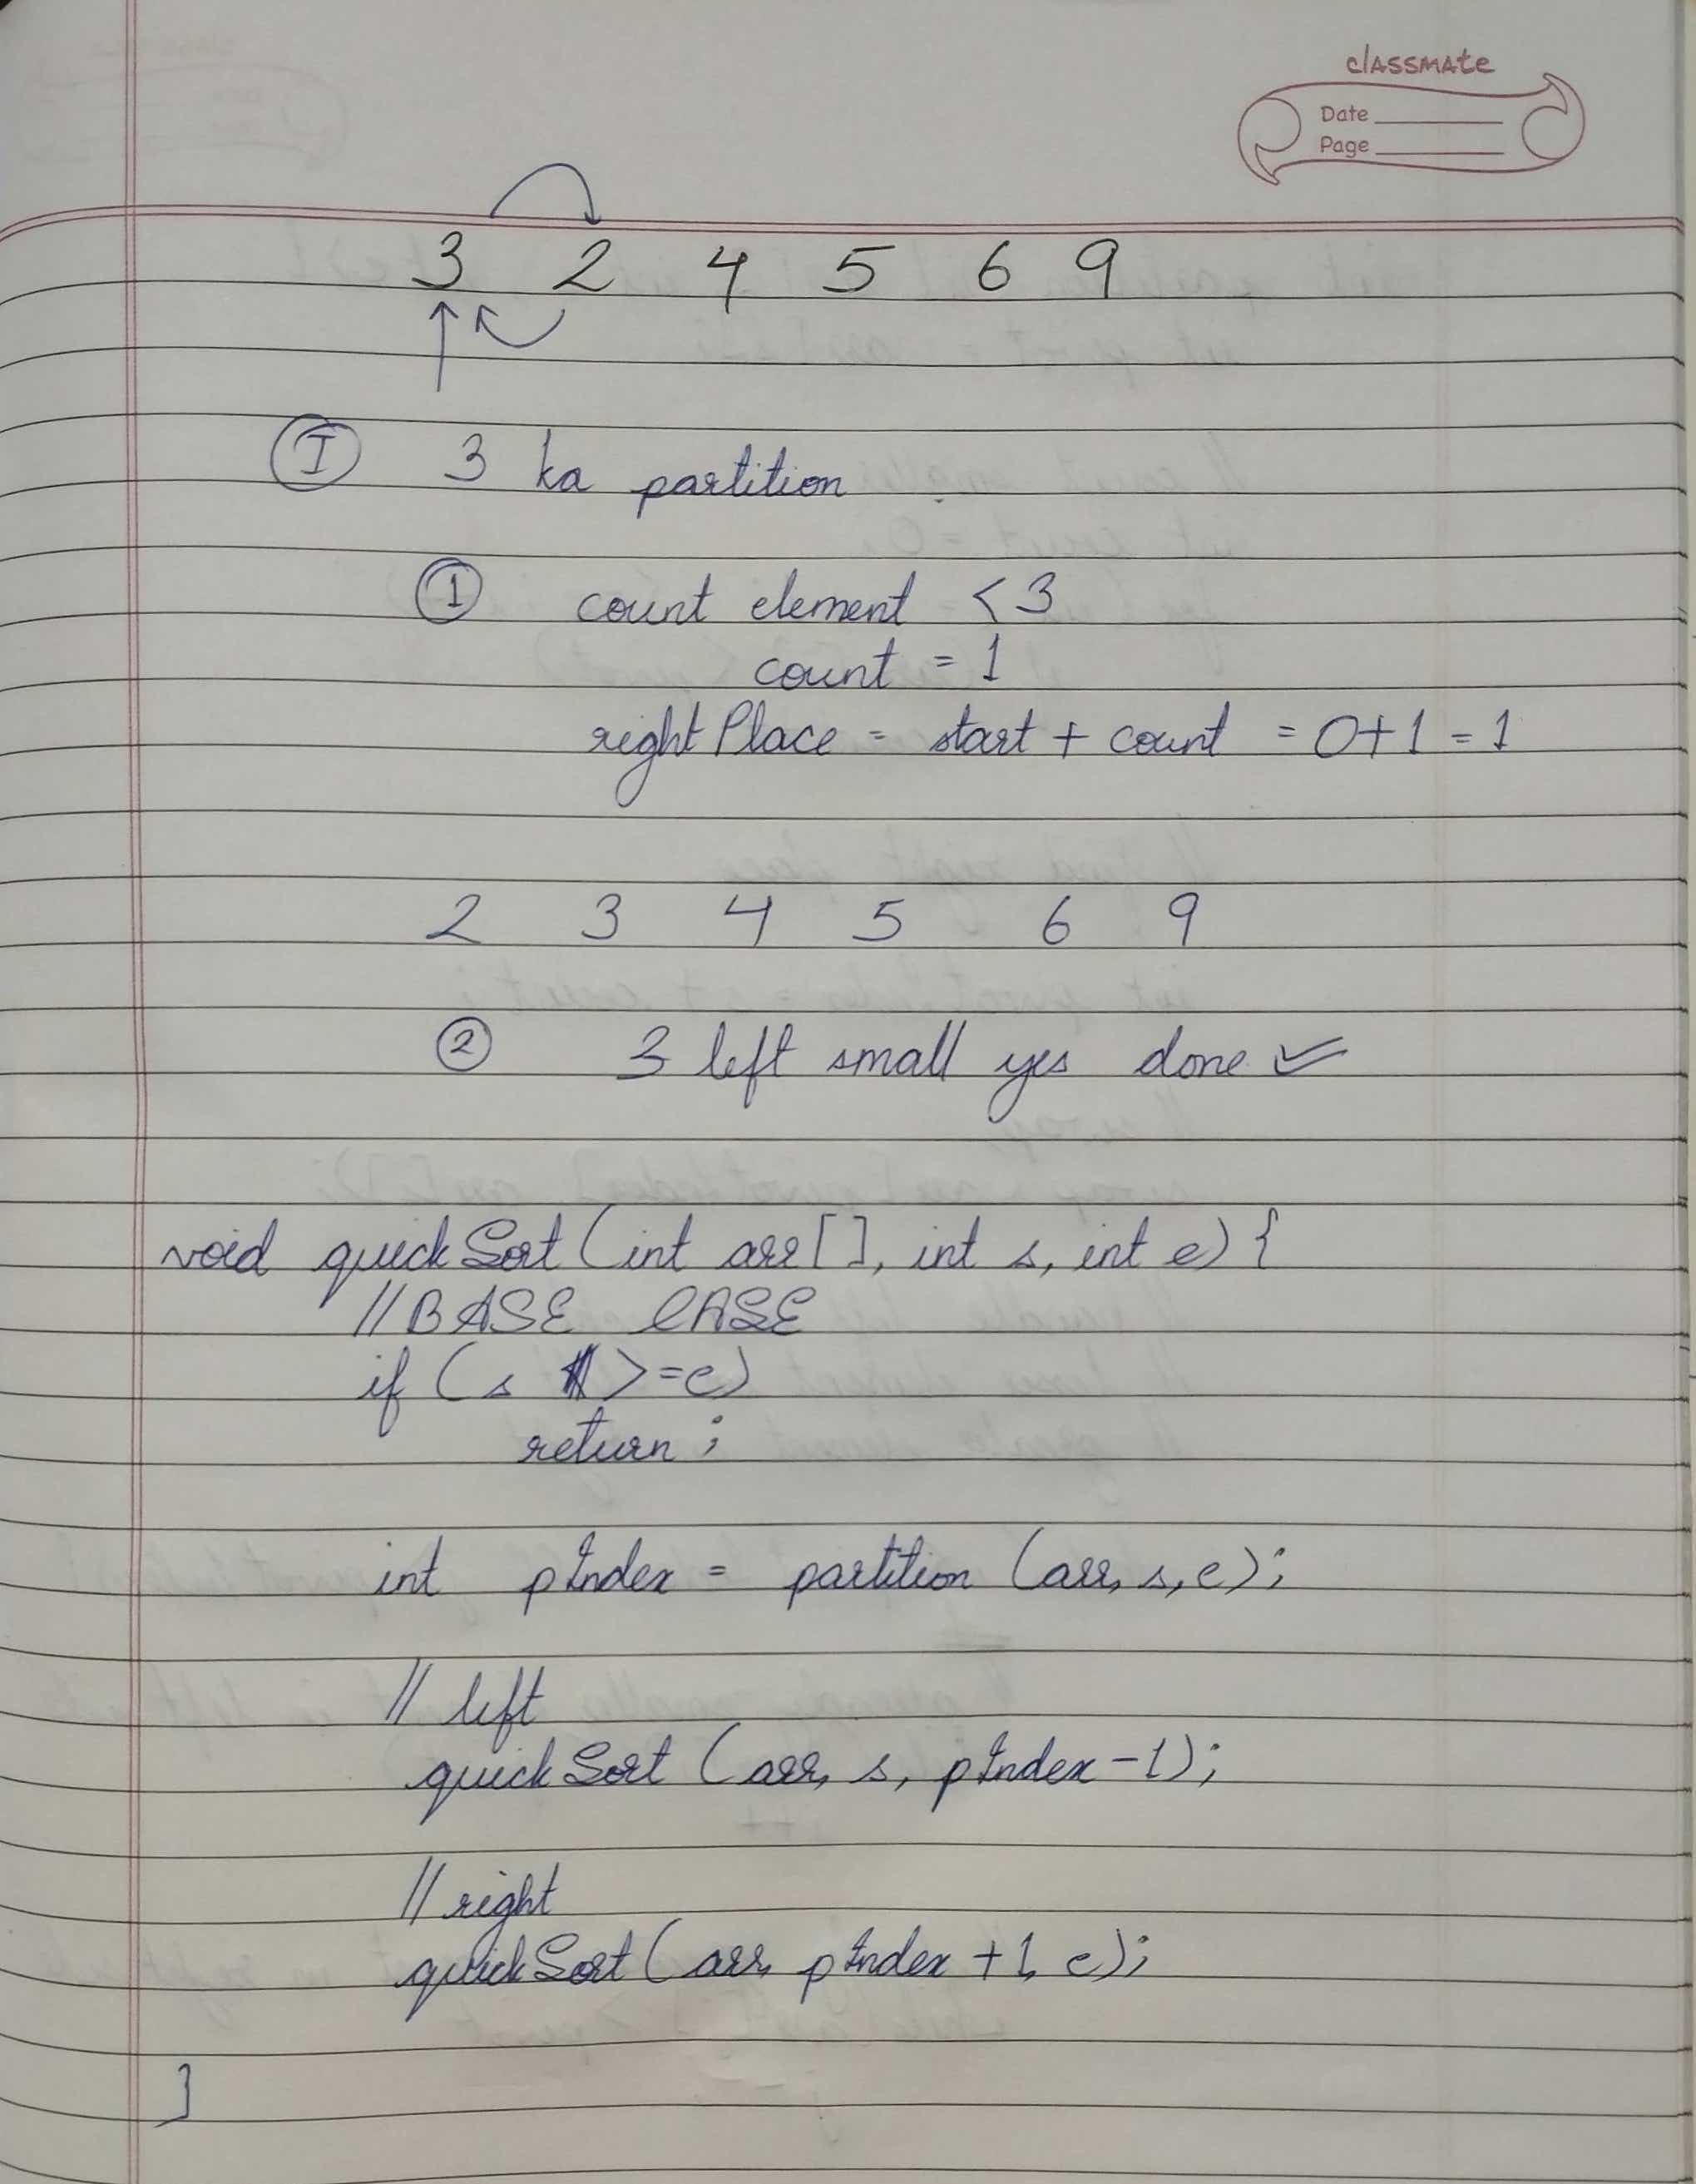 classmate
Date
Page
3 2 4 5 6 9
I 3 ka partition
1 count element <3
count = 1
rightPlace = start + count = 0+1 = 1
2 3 4 5 6 9
2 3 left small yes done ✓
void quickSort(int arr[], int s, int e){
//BASE CASE
if (s >=e)
return ;
int pIndex = partition (arr, s, e);
// left
quickSort (arr, s, pIndex-1);
// right
quickSort(arr, pIndex +1, e);
}